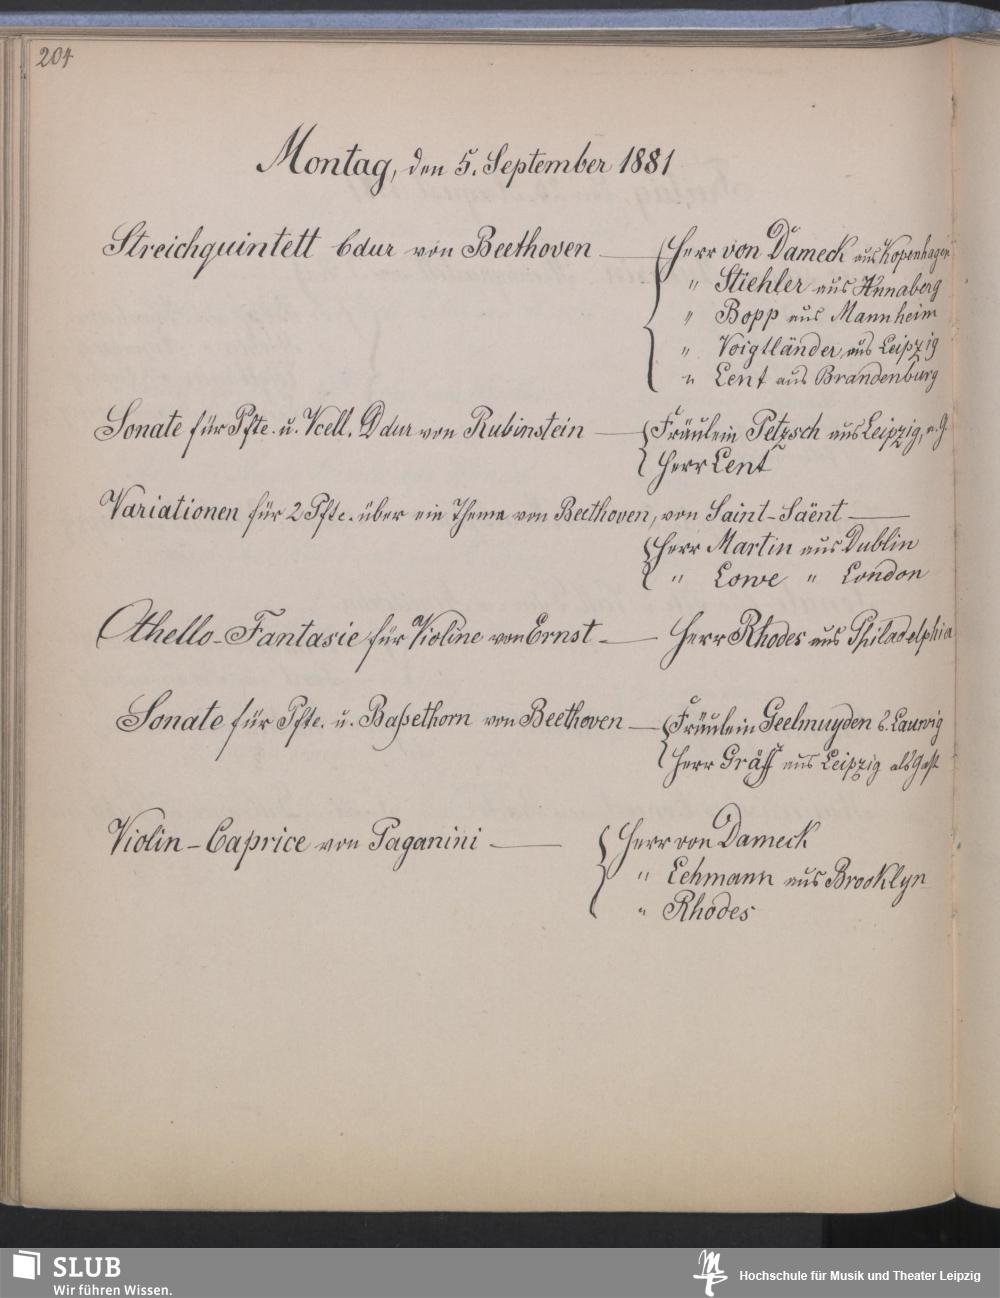 204
Montag, den 5. September 1881
Streichquintett Cdur von Beethoven — Herr von Dameck aus Kopenhagen
" Stiehler aus Annaberg
" Bopp aus Mannheim
" Voigtländer aus Leipzig
" Lent aus Brandenburg
Sonate für Pfte. u. Vcell. Ddur von Rubinstein — Fräulein Petzsch aus Leipzig, a. G.
Herr Lent
Variationen für 2 Pfte. über ein Thema von Beethoven, von Saint-Saënt —
Herr Martin aus Dublin
" Lowe " London
Othello-Fantasie für Violine von Ernst — Herr Rhodes aus Philadelphia
Sonate für Pfte. u. Baßethorn von Beethoven — Fräulein Geelmuyden Laurvig
Herr Gräff aus Leipzig als Gast
Violin-Caprice von Paganini — Herr von Dameck
" Lehmann aus Brooklyn
" Rhodes
SLUB
Wir führen Wissen.
Hochschule für Musik und Theater Leipzig